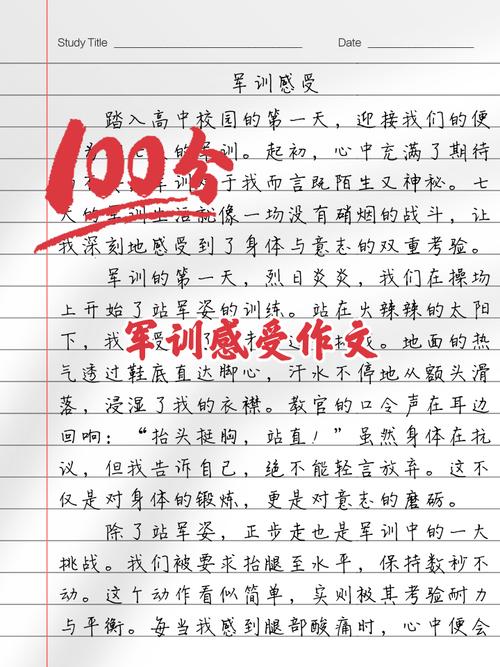 Study Title
Date
军训感受
踏入高中校园的第一天，迎接我们的便
100分
军训。起初，心中充满了期待
于我而言既陌生又神秘。七
天的军训生活就像一场没有硝烟的战斗，让
我深刻地感受到了身体与意志的双重考验。
军训的第一天，烈日炎炎，我们在操场
上开始了站军姿的训练。站在火辣辣的太阳
下，我
军训感受作文
地面的热
气透过鞋底直达脚心，汗水不停地从额头滑
落，浸湿了我的衣襟。教官的口令声在耳边
回响：“抬头挺胸，站直！”虽然身体在抗
议，但我告诉自己，绝不能轻言放弃。这不
仅是对身体的锻炼，更是对意志的磨砺。
除了站军姿，正步走也是军训中的一大
挑战。我们被要求抬腿至水平，保持数秒不
动。这个动作看似简单，实则极其考验耐力
与平衡。每当我感到腿部酸痛时，心中便会